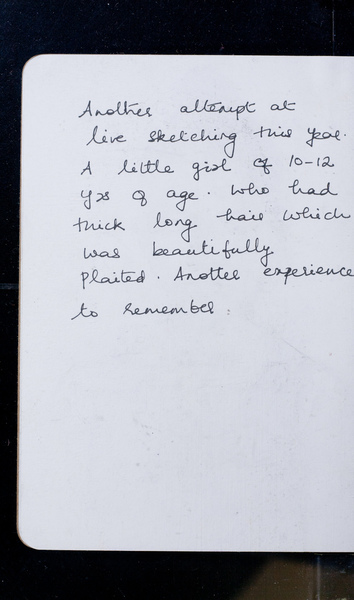 Another attempt at
live sketching this year.
A little girl of 10-12
yrs of age. Who had
thick long hair which
was beautifully
plaited. Another experience
to remember.